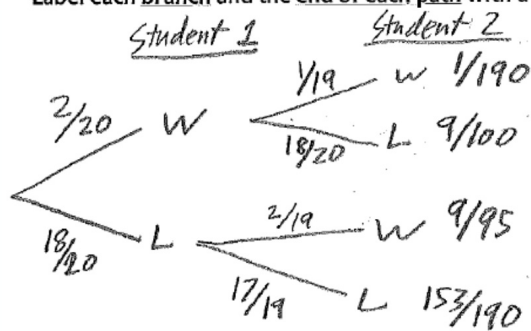 Label each branch and the end of each path with a
Student 1 Student 2
1/19 W 1/190
2/20 W
18/20 L 9/100
2/19 W 9/95
18/20 L
17/19 L 153/190